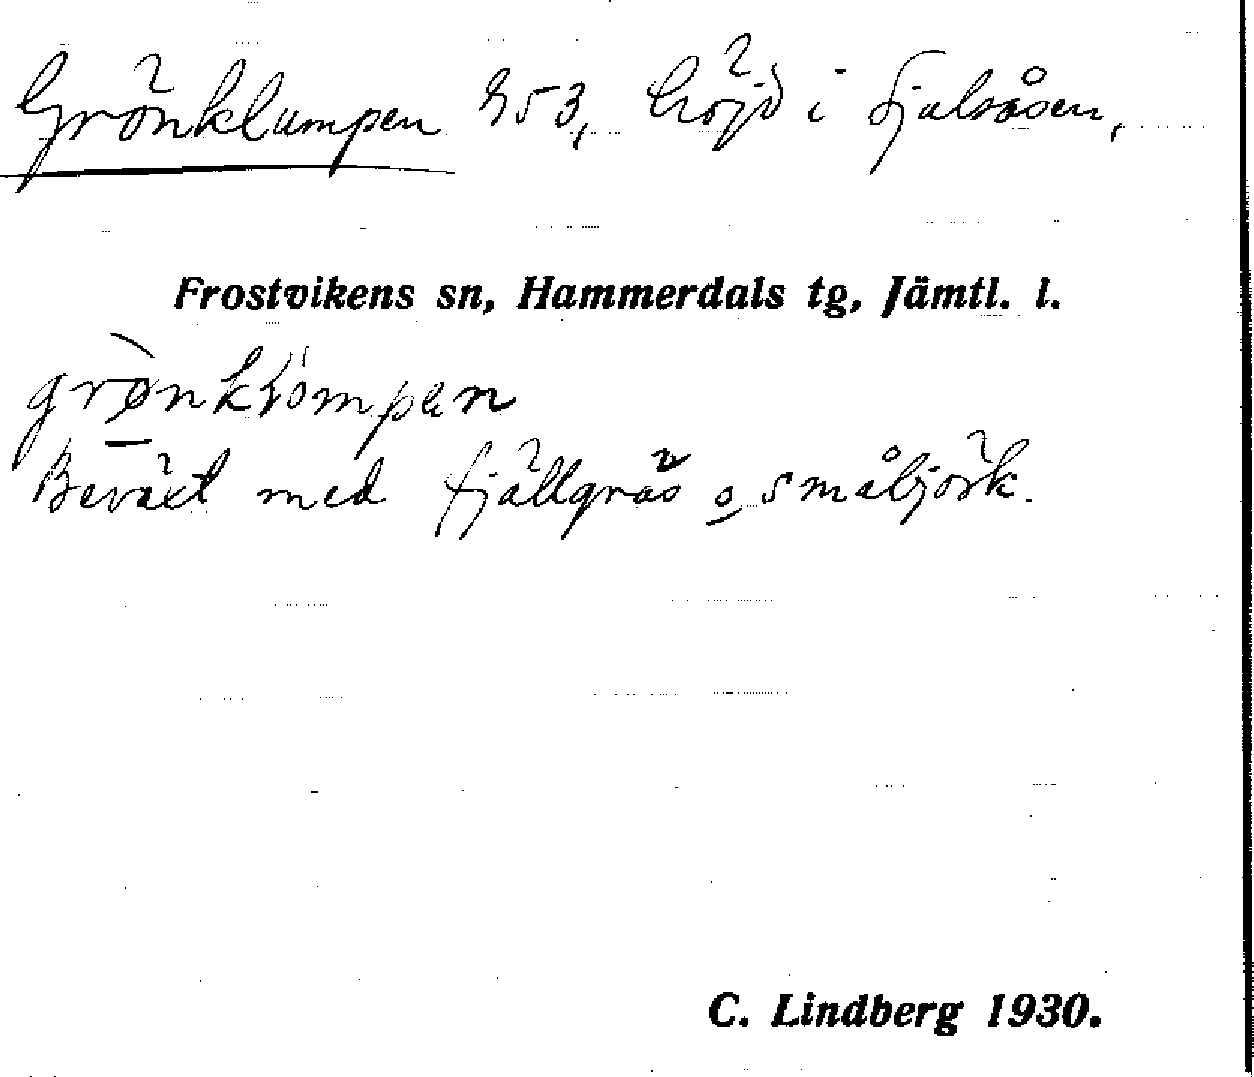 Grönklumpen 953, höjd i Fjalsåsen,
Frostvikens sn, Hammerdals tg, Jämtl. l.
Beväxt med fjällgräs o småbjörk.
C. Lindberg 1930.